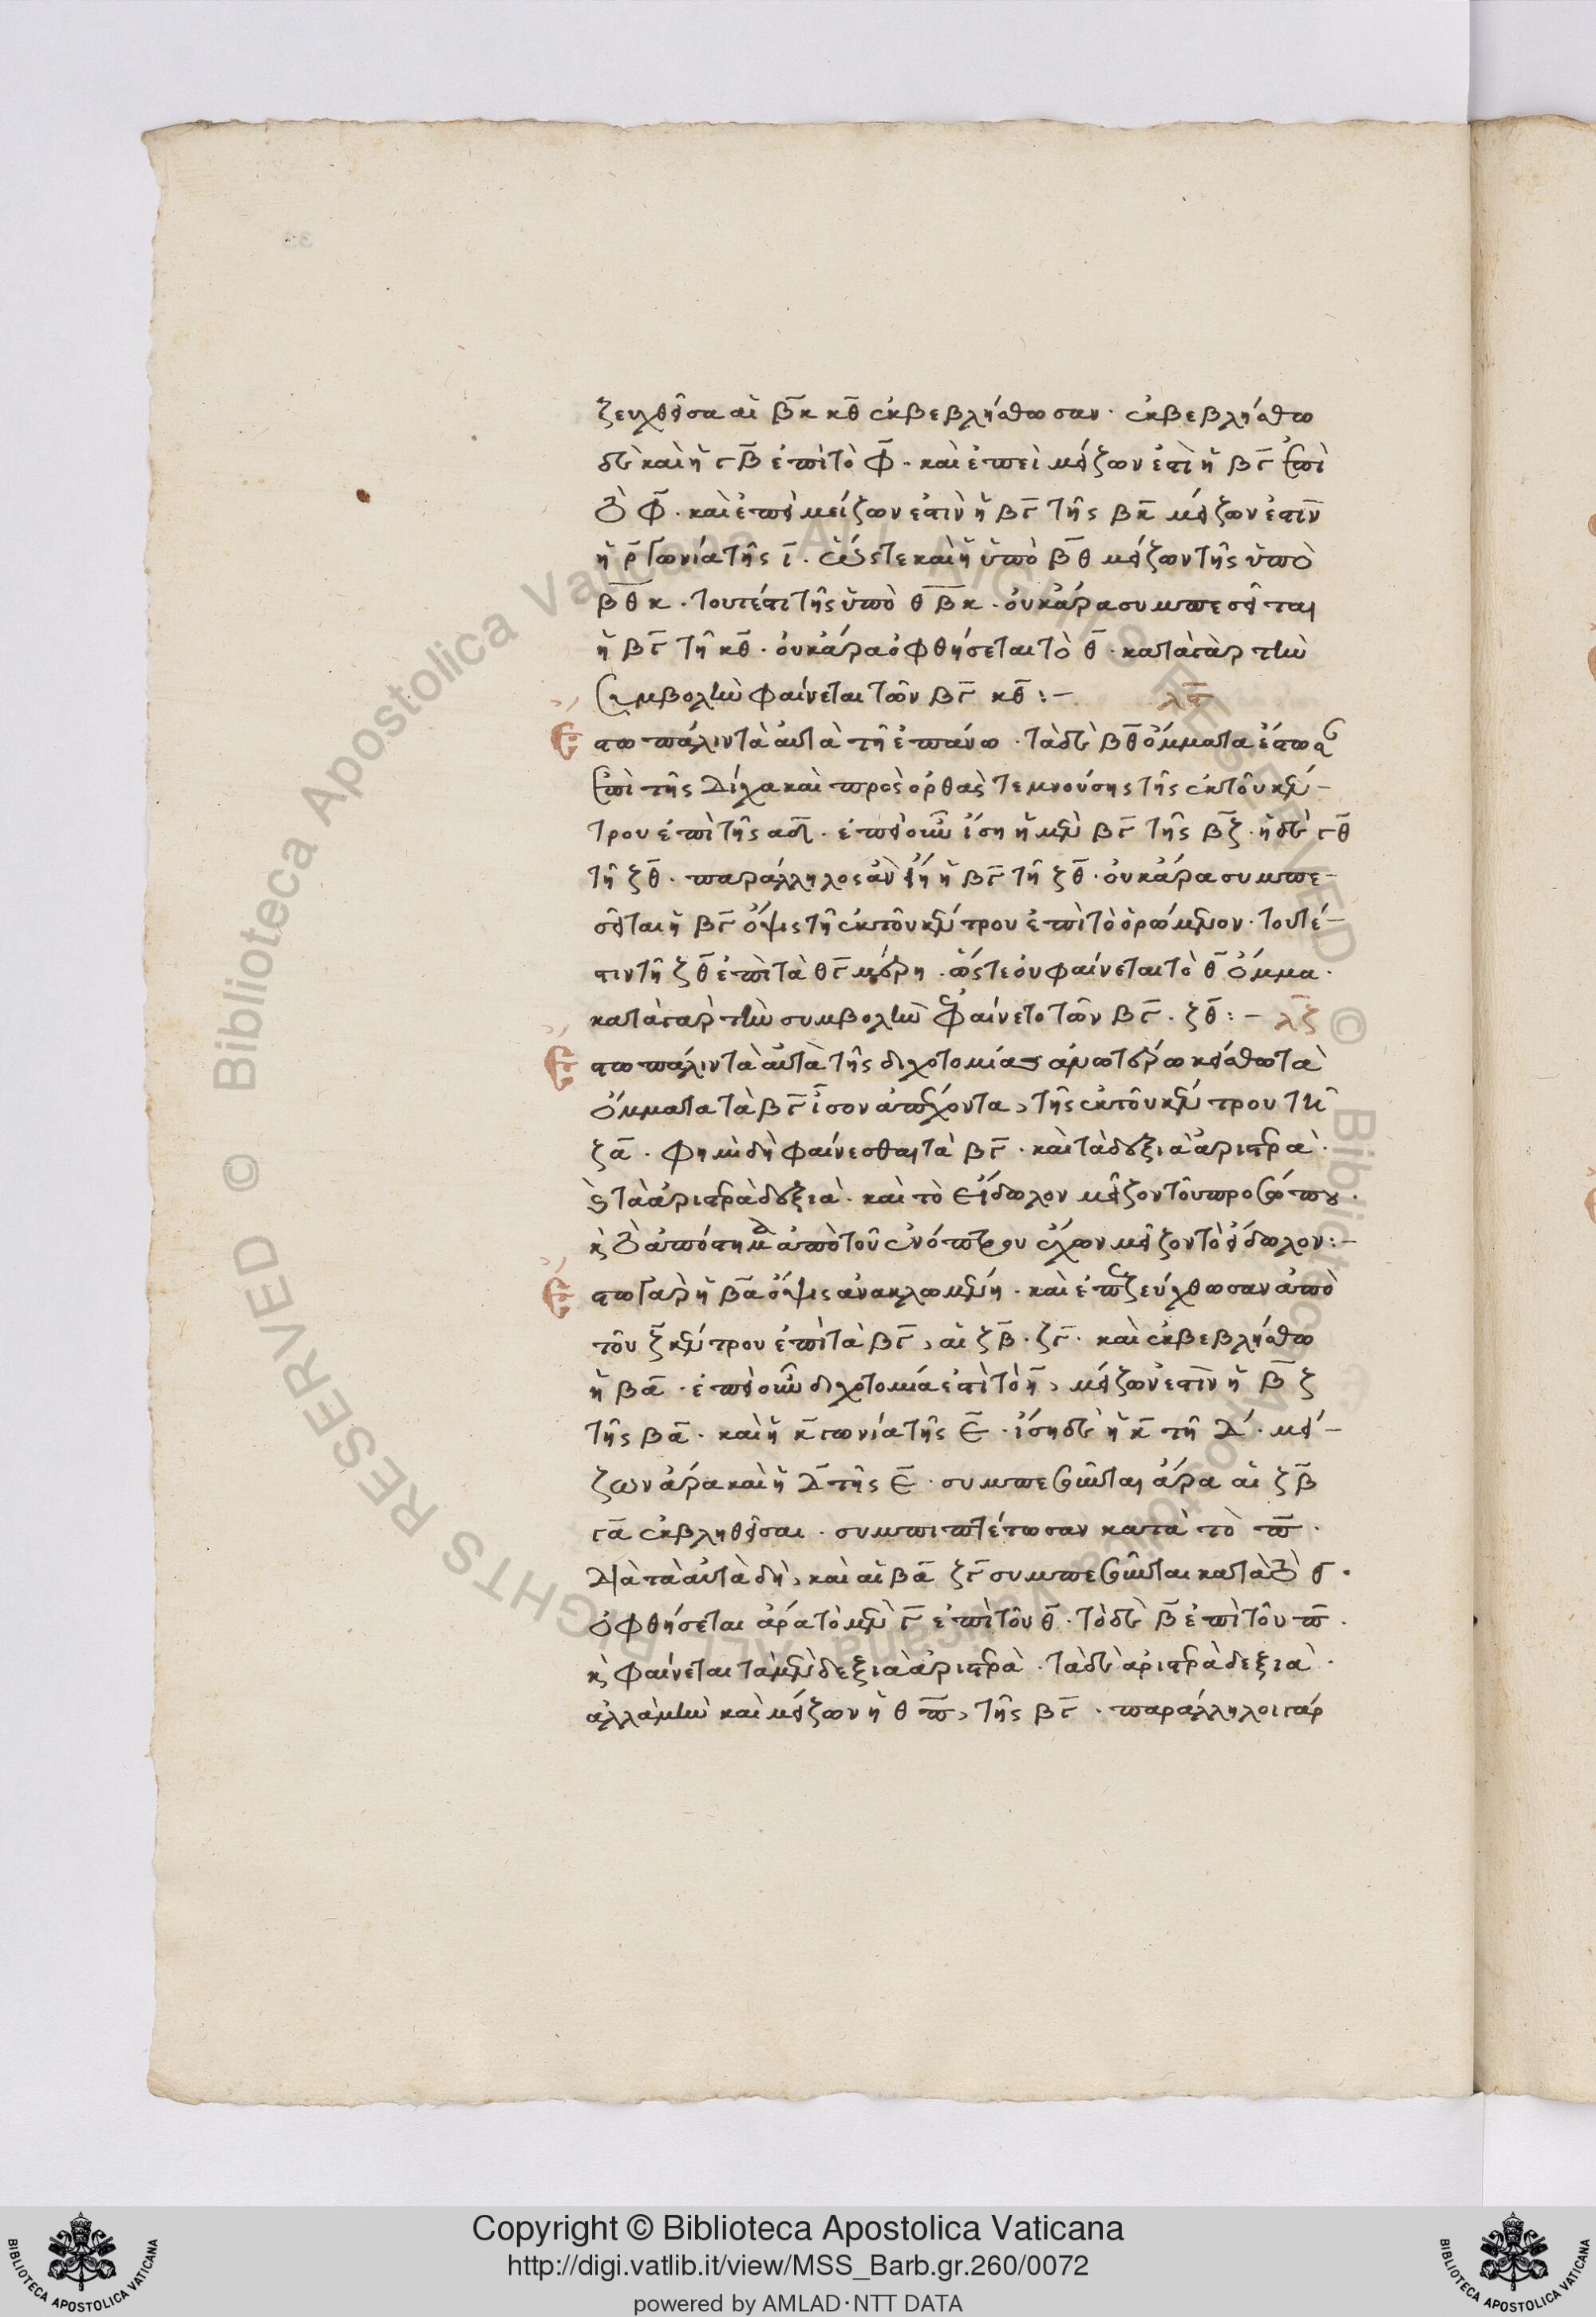 ζευχθεῖσαι αἱ β̅κ̅ κ̅θ̅ ἐκβεβλήσθωσαν· ἐκβεβλήσθω
δὲ καὶ ἡ γ̅β̅ ἐπὶ τὸ φ̅· καὶ ἐπεὶ μείζων ἐστὶ ἡ β̅γ̅ ἐπὶ
τὸ φ̅· καὶ ἐπεὶ μείζων ἐστὶν ἡ β̅γ̅ τῆς β̅κ̅ μείζων ἐστὶν
ἡ ρ̅ γωνία τῆς ι̅· ὥστε καὶ ἡ ὑπὸ β̅θ̅ μείζων τῆς ὑπὸ
β̅θ̅κ̅· τουτέστι τῆς ὑπὸ θ̅β̅κ̅· οὐκ ἄρα συμπεσεῖται
ἡ β̅γ̅ τῇ κ̅θ̅· οὐκ ἄρα ὀφθήσεται τὸ θ̅· κατὰ γὰρ τὴν
συμβολὴν φαίνεται τῶν β̅γ̅ κ̅θ̅:– λ̅ϛ̅
Ἔστω πάλιν τὰ αὐτὰ τῇ ἐπάνω· τὰ δὲ β̅θ̅ ὄμματα ἔστω
ἐπὶ τῆς δίχα καὶ πρὸς ὀρθὰς τεμνούσης τῆς ἐκ τοῦ κέν–
τρου ἐπὶ τῆς α̅δ̅· ἐπεὶ οὖν ἴση ἡ μὲν β̅γ̅ τῆς β̅ζ̅· ἡ δὲ γ̅θ̅
τῇ ζ̅θ̅· παράλληλος ἂν εἴη ἡ β̅γ̅ τῇ ζ̅θ̅· οὐκ ἄρα συμπε–
σεῖται ἡ β̅γ̅ ὄψις τῇ ἐκ τοῦ κέντρου ἐπὶ τὸ ὁρώμενον· τουτέ–
στιν τῇ ζ̅θ̅ ἐπὶ τὰ θ̅γ̅ μέρη· ὥστε οὐ φαίνεται τὸ θ̅ ὄμμα·
κατὰ γὰρ τὴν συμβολὴν ἐφαίνετο τῶν β̅γ̅· ζ̅θ̅:– λ̅ζ̅
Ἔστω πάλιν τὰ αὐτὰ τῆς διχοτομίας ἀνωτέρω κείσθω τὰ
ὄμματα τὰ β̅γ̅ ἴσον ἀπέχοντα, τῆς ἐκ τοῦ κέντρου τῆς
ζ̅α̅· φημὶ δὴ φαίνεσθαι τὰ β̅γ̅· καὶ τὰ δεξιὰ ἀριστερά·
καὶ τὰ ἀριστερὰ δεξιά· καὶ τὸ εἴδωλον μεῖζον τοῦ προσώπου·
καὶ τὸ ἀπόστημα ἀπὸ τοῦ ἐνόπτρου ἔχων μεῖζον τὸ εἴδωλον:–
Ἔστω γὰρ ἡ β̅α̅ ὄψις ἀνακλωμένη· καὶ ἐπεζεύχθωσαν ἀπὸ
τοῦ ζ̅ κέντρου ἐπὶ τὰ β̅γ̅, αἱ ζ̅β̅· ζ̅γ̅· καὶ ἐκβεβλήσθω
ἡ β̅α̅· ἐπεὶ οὖν διχοτομία ἐστὶ τὸ η̅, μείζων ἐστὶν ἡ β̅ζ̅
τῆς β̅α̅· καὶ ἡ κ̅ γωνία τῆς ε̅· ἴση δὲ ἡ κ̅ τῇ δ̅· μεί–
ζων ἄρα καὶ ἡ δ̅ τῆς ε̅· συμπεσοῦνται ἄρα αἱ ζ̅β̅
γ̅α̅ ἐκβληθεῖσαι· συμπιπτέτωσαν κατὰ τὸ π̅·
διὰ τὰ αὐτὰ δὴ, καὶ αἱ β̅α̅ ζ̅γ̅ συμπεσοῦνται κατὰ τὸ
ὀφθήσεται ἄρα τὸ μὲν γ̅ ἐπὶ τοῦ θ̅· τὸ δὲ β̅ ἐπὶ τοῦ π̅·
καὶ φαίνεται τὰ μὲν δεξιὰ ἀριστερά· τὰ δὲ ἀριστερὰ δεξιά·
ἀλλὰ μὴν καὶ μείζων ἡ θ̅π̅, τῆς β̅γ̅· παράλληλοι γάρ
Copyright © Biblioteca Apostolica Vaticana
http://digi.vatlib.it/view/MSS_Barb.gr.260/0072
powered by AMLAD·NTT DATA